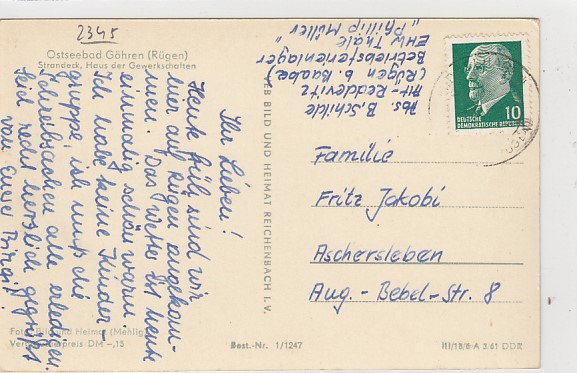 2345
Ostseebad Göhren (Rügen)
Strandeck, Haus der Gewerkschaften
Ihr Lieben!
Heute früh sind wir
hier auf Rügen angekom-
men. Das Wetter ist heute
einmalig schön warm.
Ich habe keine Kinder-
gruppe, ich muß die
Schreibsachen alle erledigen.
Seid recht herzlich gegrüßt
von Eurer Birgit
Foto: Bild und Heimat (Mehlig)
Verbraucherpreis DM -,15
VEB BILD UND HEIMAT REICHENBACH I. V.
Best.-Nr. 1/1247
Abs B. Schilde
Alt-Reddevitz
(Rügen b. Baabe)
Betriebsferienlager
EHW Thale
"Philipp Müller"
10
DEUTSCHE
DEMOKRATISCHE REPUBLIK
Familie
Fritz Jakobi
Aschersleben
Aug.-Bebel-Str. 8
III/18/6 A 3/61 DDR